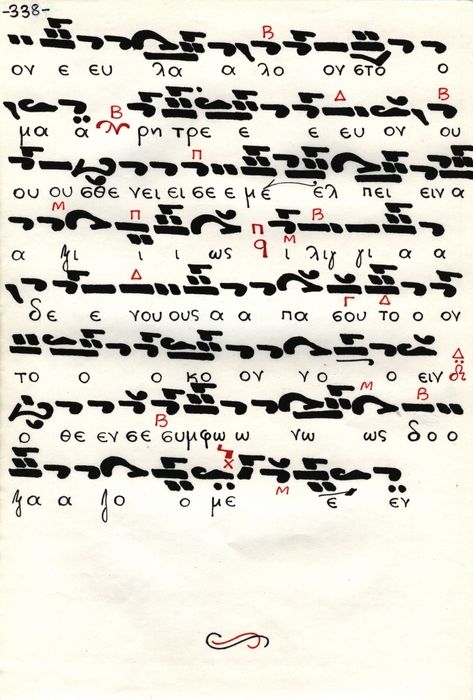 -338-
ον ε ευ λα α λο ον στο ο
μα α ρη τρε ε ε ευ ον ου
ου ου σθε νει ει σε ε με ελ πει ειν α
α ζι ι ι ως ι λιγ γι α α
δε ε νου ους α α πα σου το ο ον
το ο ο κο ον νο ο ειν
ο θε εν σε συμφω ω νω ως δο ο
ζα α ζο ο με ε εν